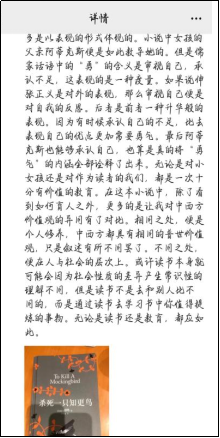 详情
多是以表现的形式体现的。小说中女孩的
父亲阿蒂克斯便是如此教导她的。但是儒
家话语中的“勇”的含义是审视自己,承
认不足,这表现的是一种度量。如果说伸
张正义是对外的表现,那么审视自己便是
对自我的反思。后者是前者一种升华般的
表现。因为有时候承认自己的不足,比去
表现自己的优点更加需要勇气。最后阿蒂
克斯也能够承认自己,也算是真的将“勇
气”的内涵全部诠释了出来。无论是对小
女孩还是对作为读者的我们,都是一次十
分有价值的教育。在这本小说中,除了看
到如何育人之外,更多的是让我对中西方
价值观的异同有了对比。相同之处,便是
个人修养,中西方都具有相同的普世价值
观,只是叙述有所不同罢了。不同之处,
便在人与社会的层次上。或许读书本身就
可能会因为社会性质的差异产生常识性的
理解不同,但是读书不是去和别人比不
同的,而是通过读书去学习书中你值得提
炼的事物。无论是读书还是教育,都应如
此。
To Kill A
Mockingbird
杀死一只知更鸟